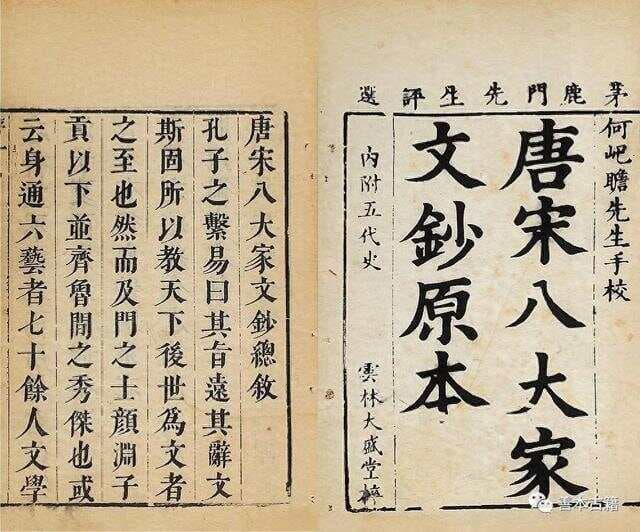 茅鹿門先生評選
何屺瞻先生手校
唐宋八大家
文鈔原本
內附五代史
雲林大盛堂梓
唐宋八大家文鈔總敘
孔子之繫易曰其旨遠其辭文
斯固所以教天下後世為文者
之至也然而及門之士顏淵子
貢以下並齊魯間之秀傑也或
云身通六藝者七十餘人文學
善本古籍